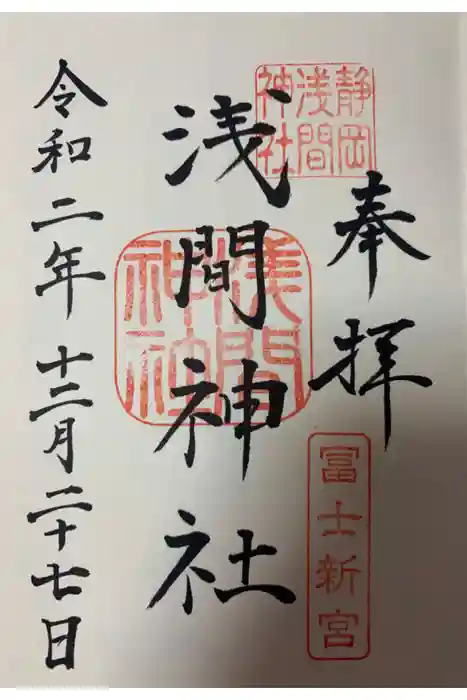 奉拝
冨士新宮
静岡
浅間
神社
浅間神社
浅間
神社
令和二年 十二月二十七日